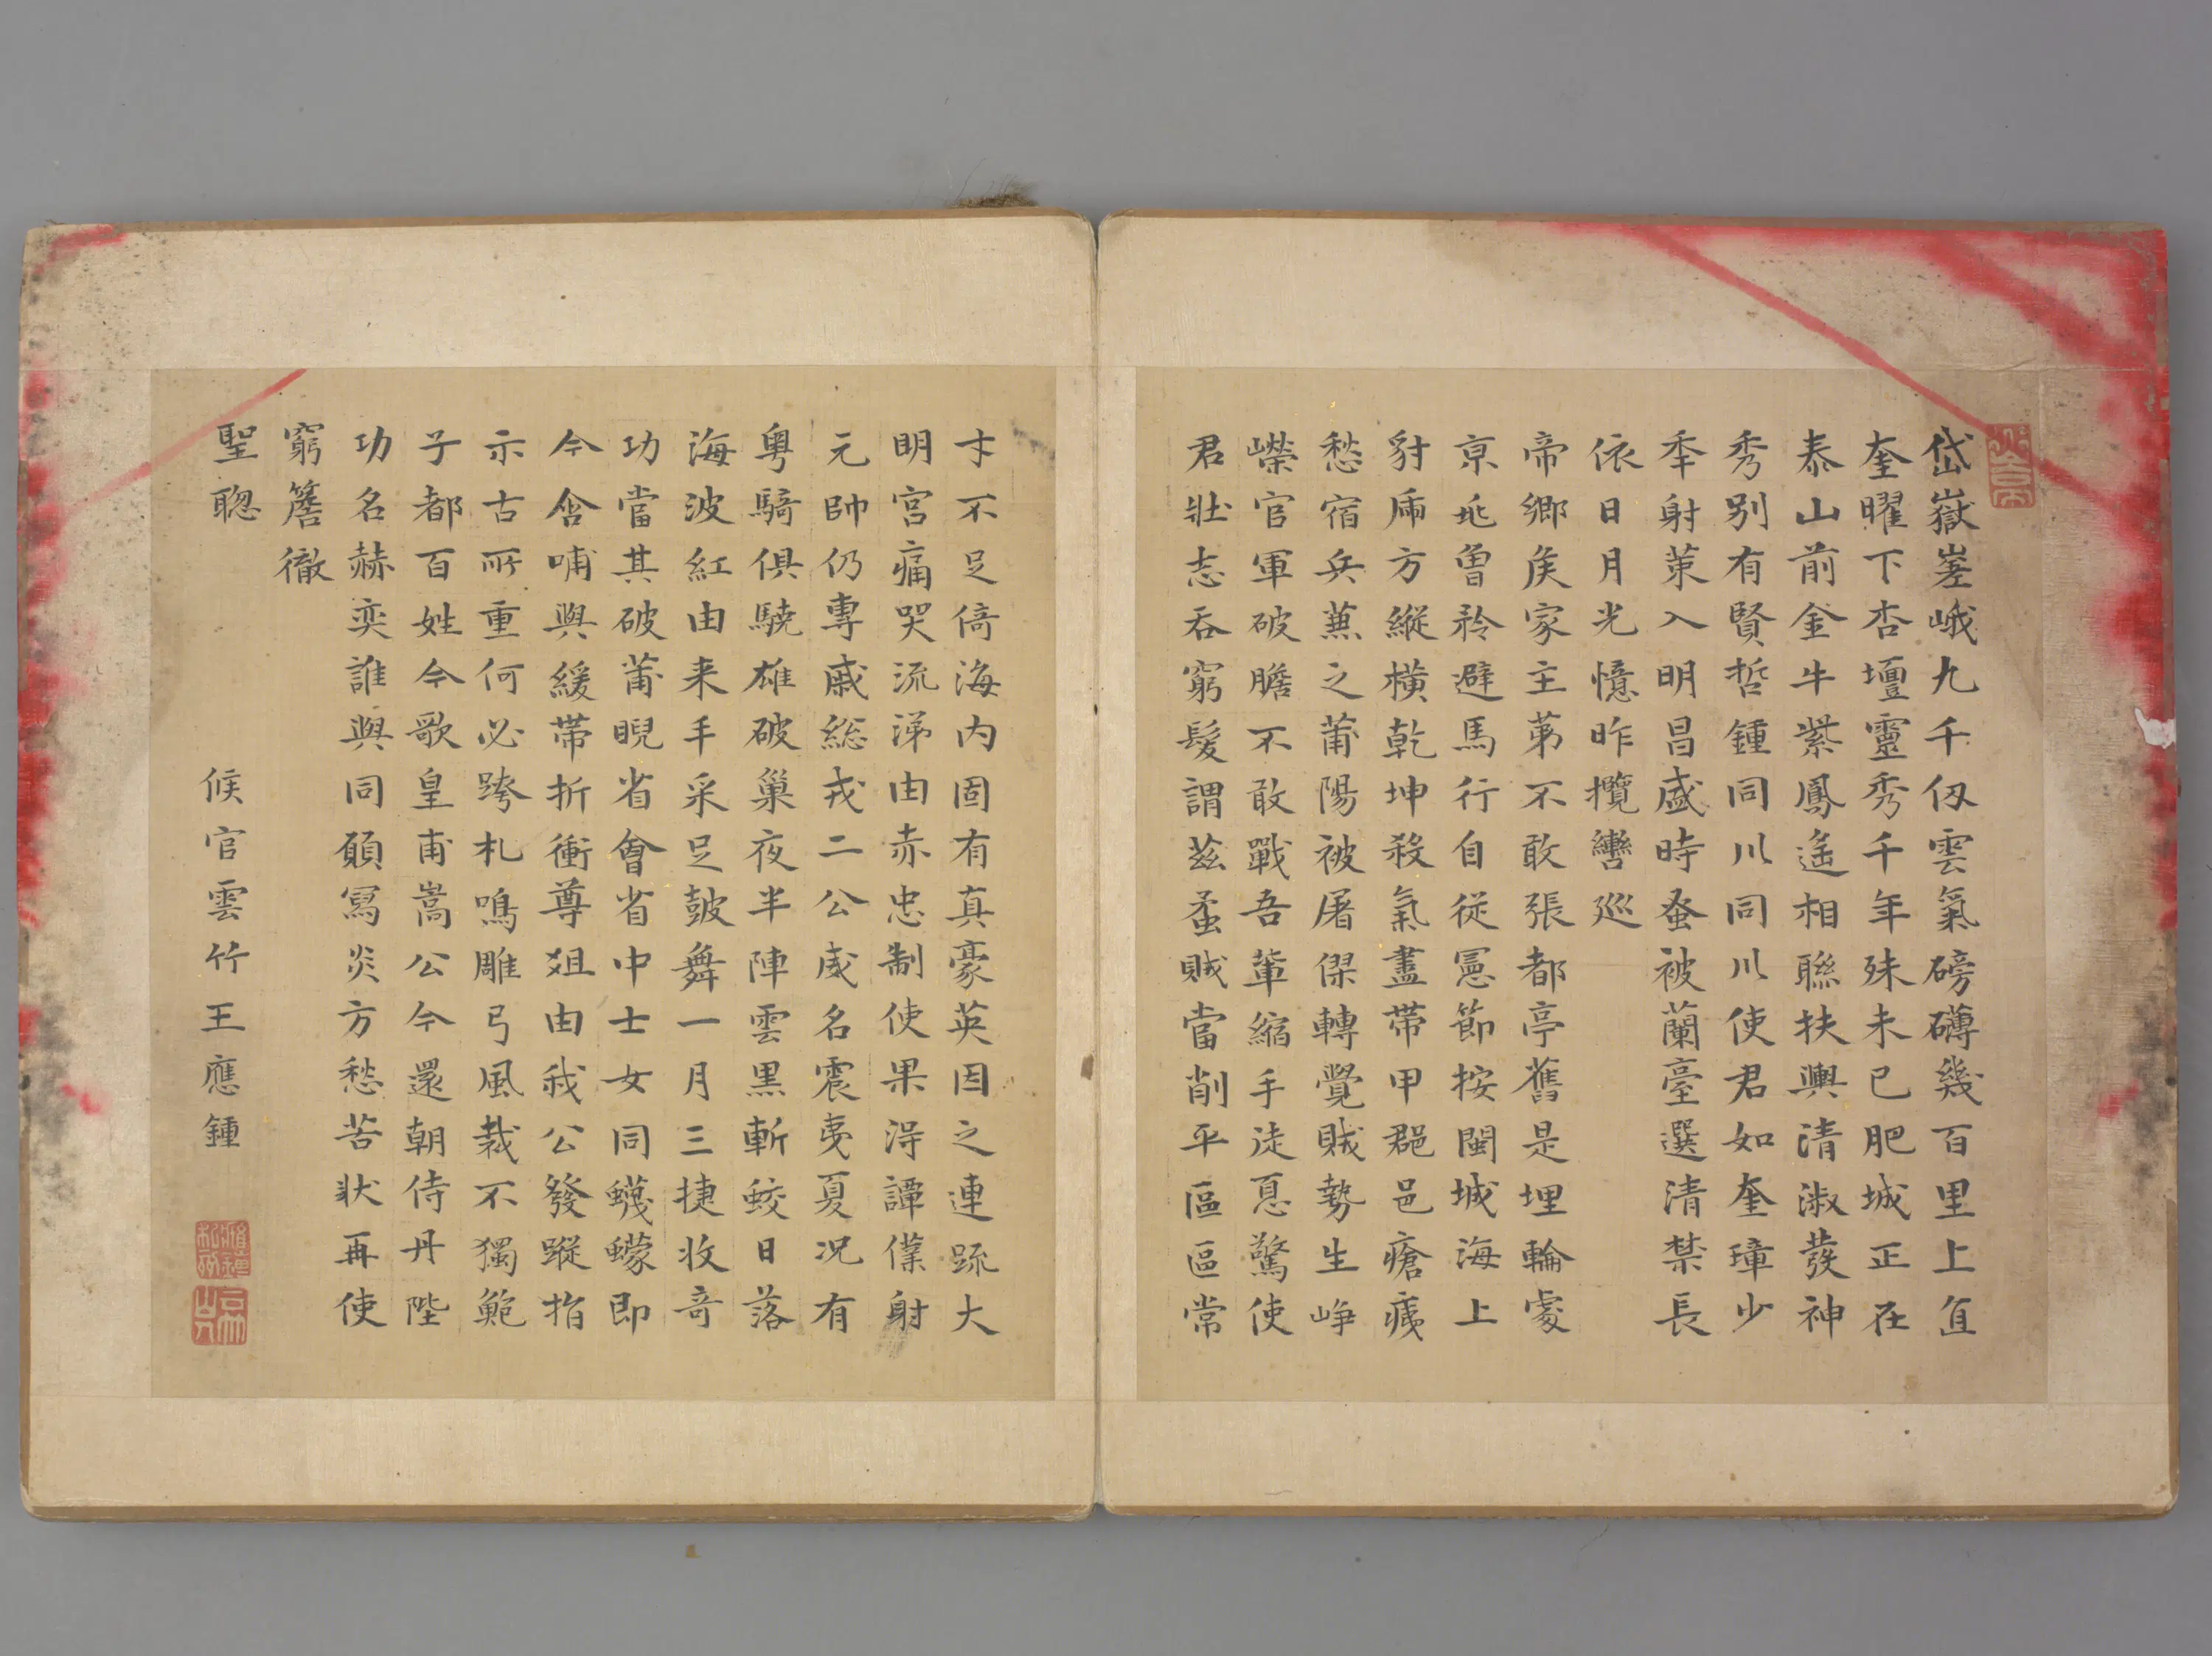 岱嶽嵳峨九千仭雲氣磅礴幾百里上直
奎曜下杏壇靈秀千年殊未已肥城正在
泰山前金牛紫鳳遙相聯扶輿清淑發神
秀別有賢哲鍾同川同川使君如奎璋少
秊射策入明昌盛時蚤被蘭臺選清禁長
依日月光憶昨攬轡巡
帝鄉矦家主苐不敢張都亭舊是埋輪處
京兆曾矜避馬行自從憲節按閩城海上
豺虎方縱橫乾坤殺氣盡帶甲郡邑瘡痍
愁宿兵蕪之莆陽被屠傑轉覺賊勢生崢
嶸官軍破膽不敢戰吾輩縮手徒息驚使
君壯志吞窮髮謂茲孟賊當削平區區常
才不足倚海內固有真豪英因之連䟽大
明宮痛哭流涕由赤忠制使果淂譚僕射
元帥仍專戚総戎二公威名震夷夏況有
粤騎俱驍雄破巢夜半陣雲黒斬蛟日落
海波紅由来手采足皷舞一月三捷收竒
功當其破莆睨省會省中士女同蠛蠓即
今含哺與緩帶折衝尊俎由我公發蹤指
示古所重何必跨札鳴雕弓風裁不獨鮑
子都百姓今歌皇甫嵩公今還朝侍丹陛
功名赫奕誰與同願寫炎方愁苦狀再使
窮簷徹
聖聦
候官雲竹王應鍾